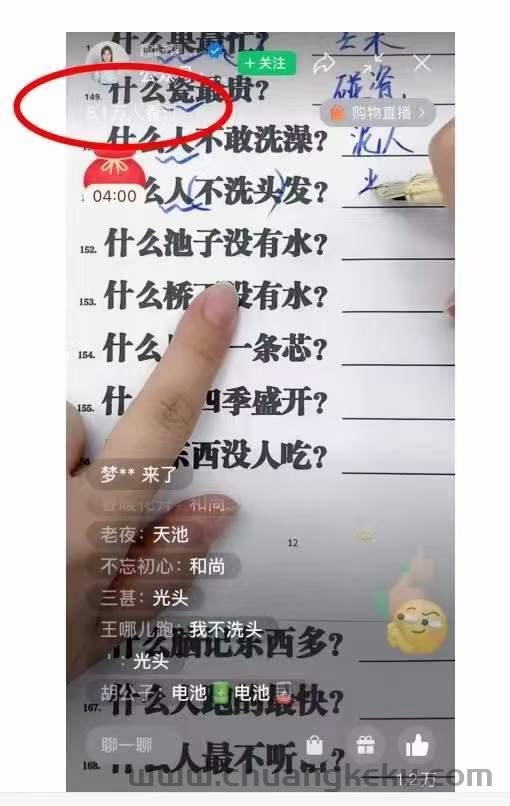 什么果最忙?
+关注
149. 什么瓷最贵? 碰瓷
万人看过
购物直播 >
什么人不敢洗澡? 泥人
么人(不洗头)发?
04:00
152. 什么池子没有水?
153. 什么桥 没有水?
154. 什么 一条芯?
155. 什 四季盛开?
东西没人吃?
梦** 来了
春暖花开: 和尚
老夜: 天池
12
不忘初心: 和尚
三甚: 光头
王哪儿跑: 我不洗头
光头
什么脑记东西多?
胡公子: 电池🔋电池🪫
167. 什么人跑的最快?
聊一聊
168. 什么人最不听
www.chuangkcky.com
1.2万